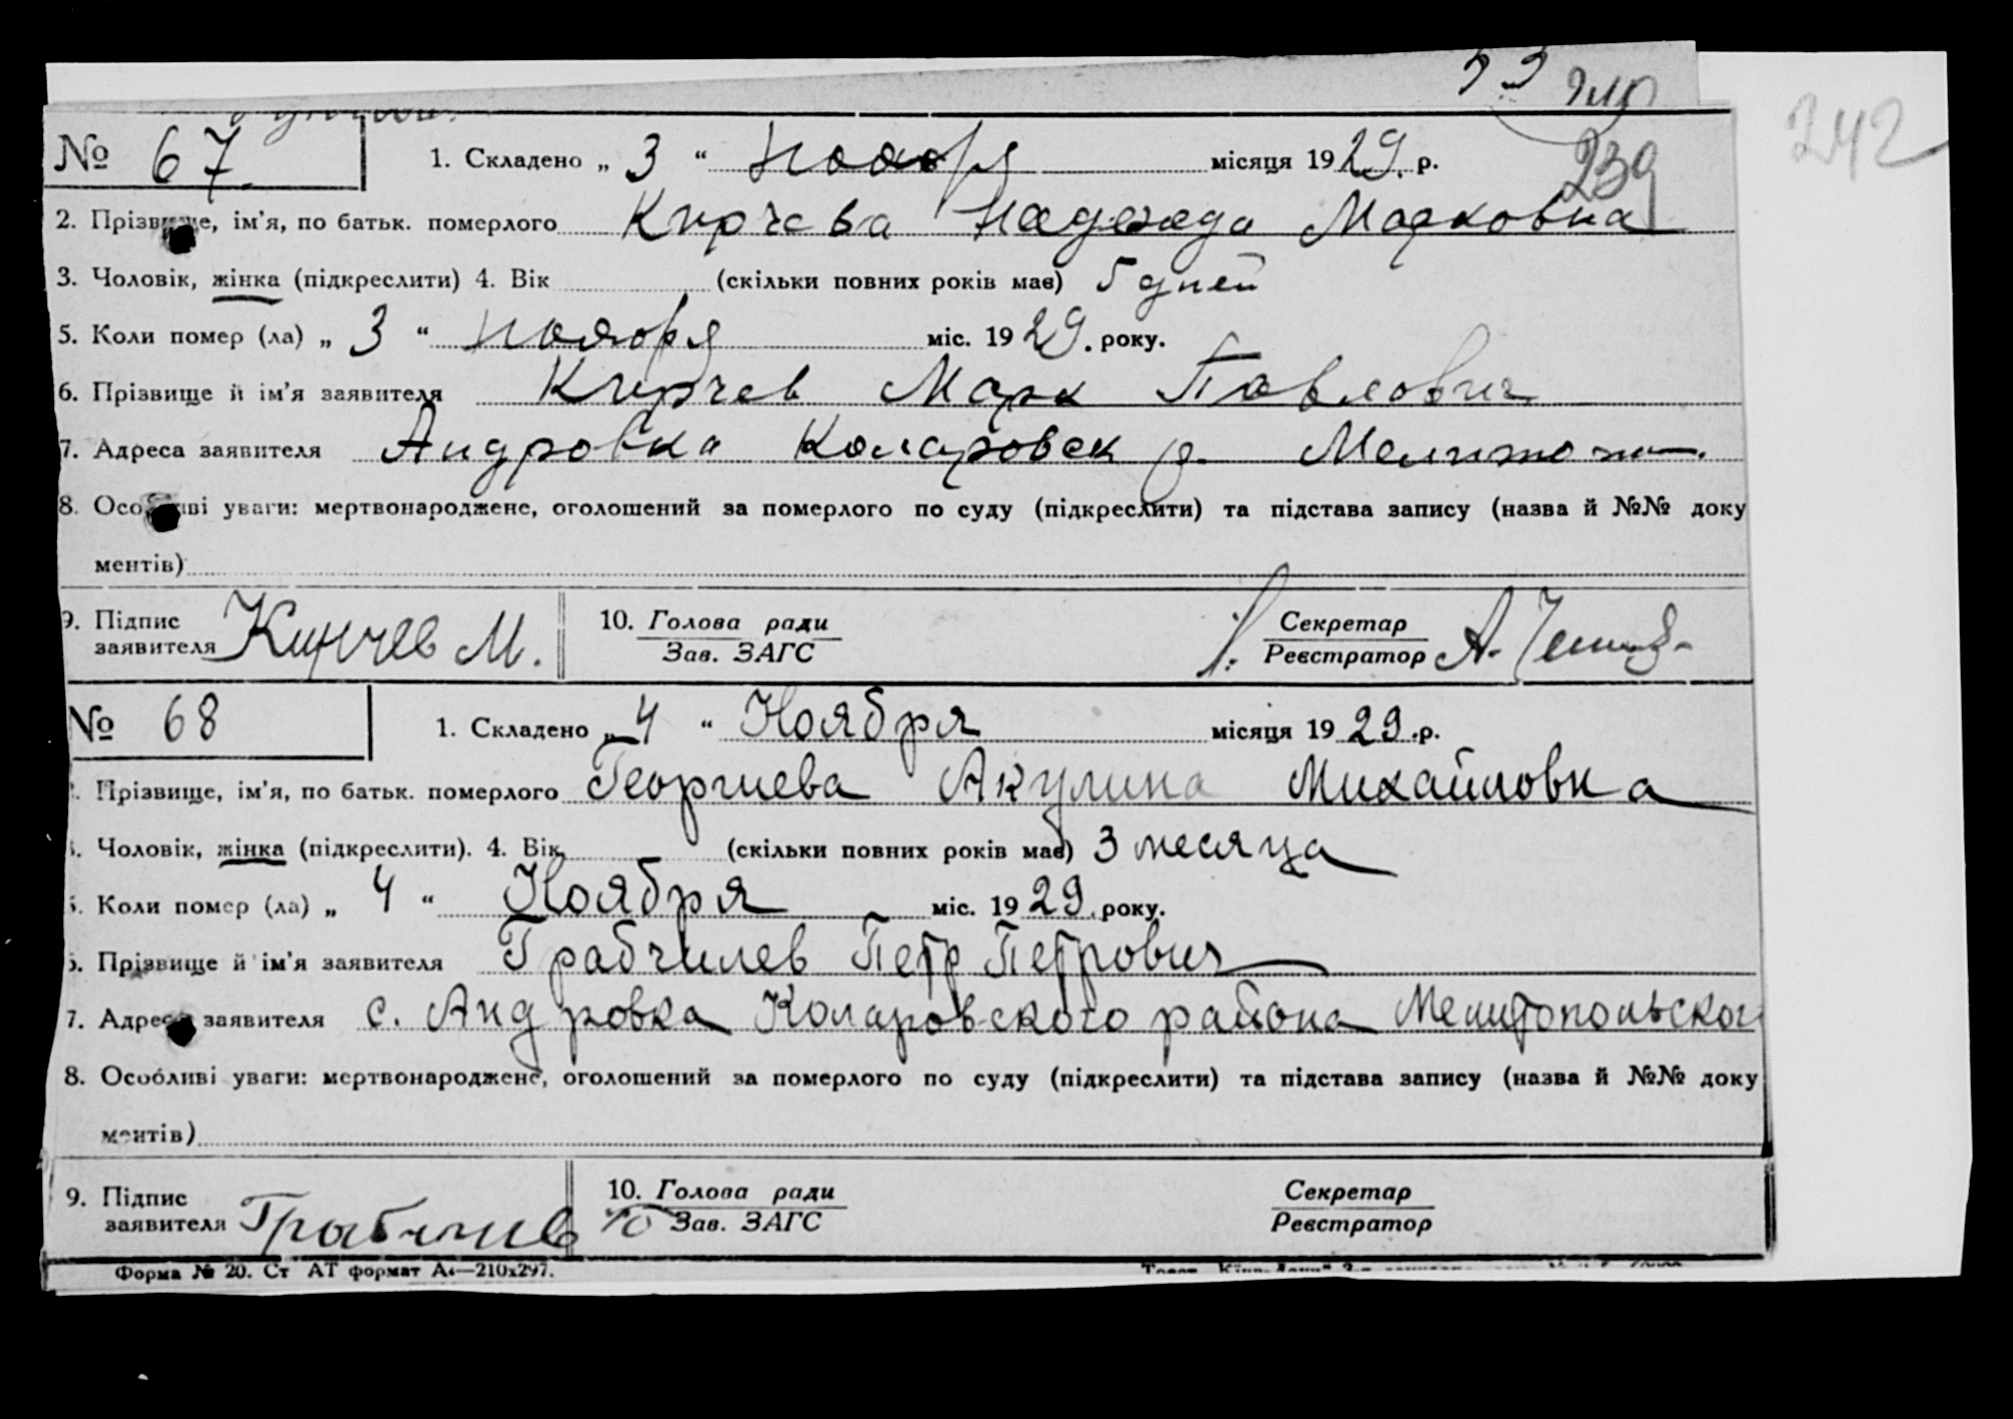 239
242
№ 67. 1. Складено „ 3 “ ноября місяця 1929. р.
2. Прізвище, ім’я, по батьк. померлого Кирчева Надежда Марковна
3. Чоловік, жінка (підкреслити) 4. Вік (скільки повних років має) 5 дней
5. Коли помер (ла) „ 3 “ ноября міс. 1929. року.
6. Прізвище й ім’я заявителя Кирчев Марк Павлович
7. Адреса заявителя Андровка Коларовск р.
8. Особливі уваги: мертвонароджене, оголошений за померлого по суду (підкреслити) та підстава запису (назва й №№ доку
ментів)
9. Підпис заявителя Кирчев М. 10. Голова ради Зав. ЗАГС Секретар Реєстратор А.
№ 68 1. Складено „ 4 “ Ноября місяця 1929.р.
Прізвище, ім’я, по батьк. померлого Георгиева Акулина Михайловна
Чоловік, жінка (підкреслити). 4. Вік (скільки повних років має) 3 месяца
Коли помер (ла) „ 4 “ Ноября міс. 1929. року.
Прізвище й ім’я заявителя Грабчилев Петр Петрович
7. Адреса заявителя с. Андровка Коларовского района Мелитопольског
8. Особливі уваги: мертвонароджене, оголошений за померлого по суду (підкреслити) та підстава запису (назва й №№ доку
ментів)
9. Підпис заявителя Грабчилев 10. Голова ради Зав. ЗАГС Секретар Реєстратор
Форма № 20. Ст АТ формат А4—210x297.